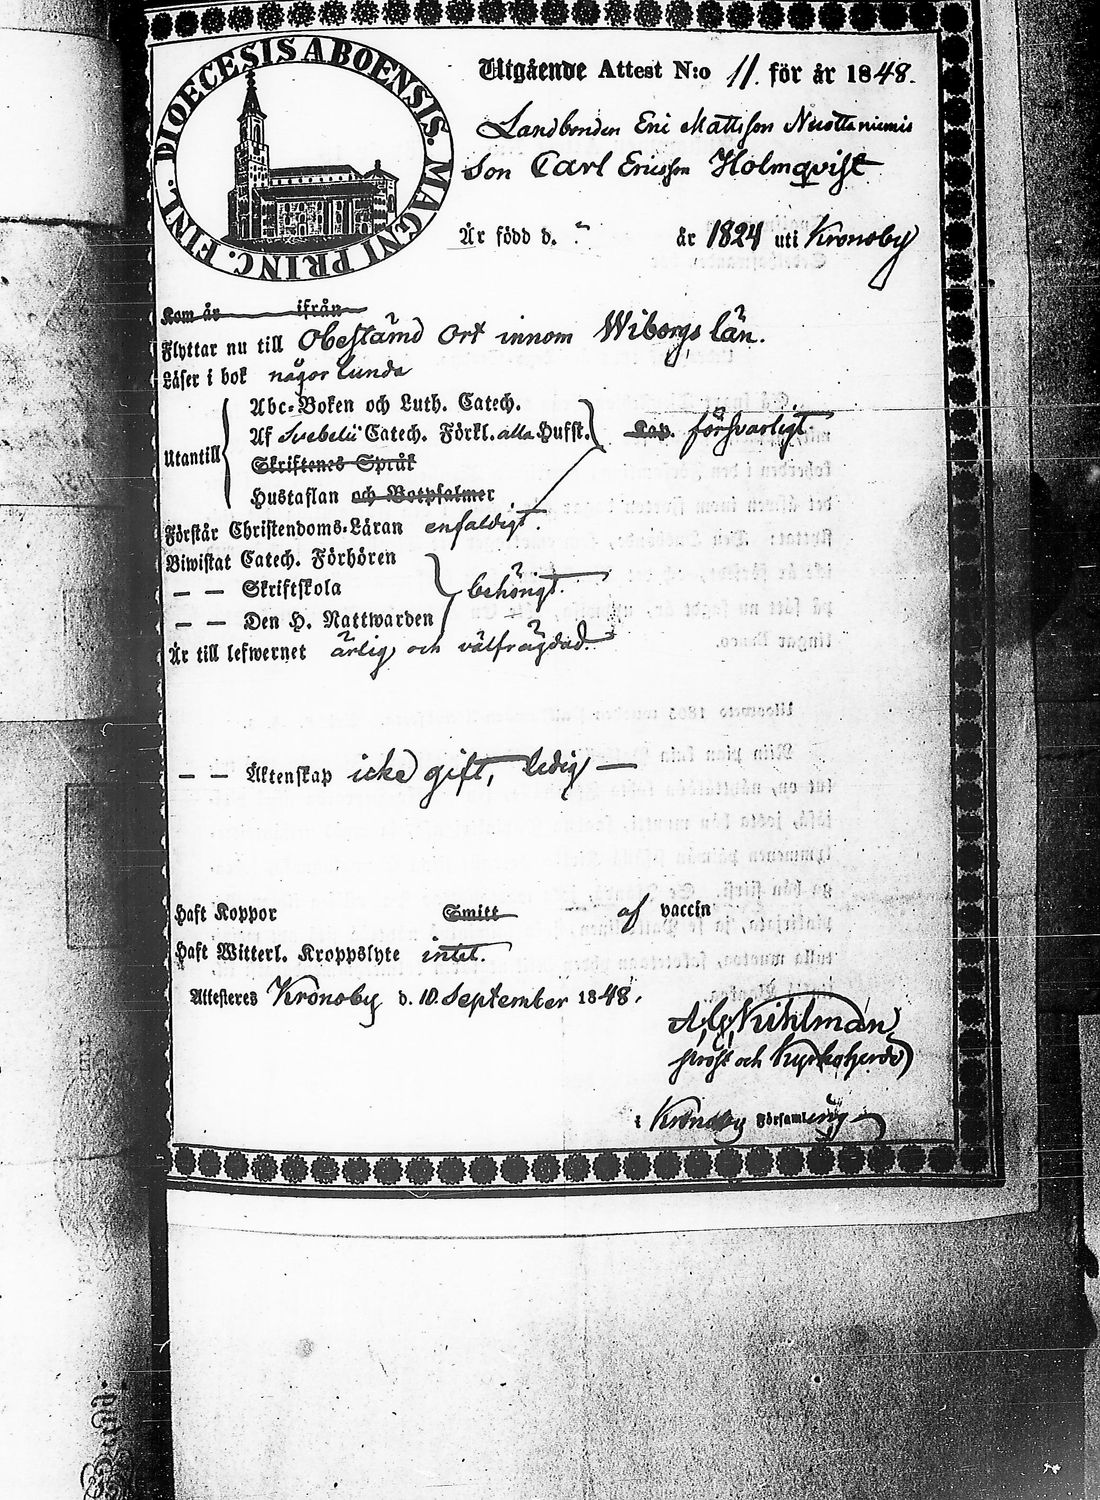 DIOECESIS ABOENSIS. MAGNI PRINC. FINL.
Utgående Attest N:o 11. för år 1848.
Landbonden Eric Mattsson Nuottaniemis
Son Carl Ericsson Holmqvist
Är född d. " år 1824 uti Kronoby
Kom år ifrån
Flyttar nu till Obestämd Ort innom Wiborgs län.
Läser i bok någorlunda
Abc-Boken och Luth. Catech.
Utantill Af Svebelii Catech. Förkl. alla Hufst. Kap. försvarligt
Skriftenes Språk
Hustaflan och Botpsalmer
Förstår Christendoms-Läran enfaldigt.
Biwistat Catech. Förhören
— — Skriftskola behörigt.
— — Den H. Nattwarden
Är till lefwernet ärlig och välfrägdad.
— — Äktenskap icke gift, ledig —
Haft Koppor Smitt af vaccin
Haft Witterl. Kroppslyte intet.
Attesteres Kronoby d. 10 September 1848.
Prost och Kyrkoherde
i Kronoby Församling